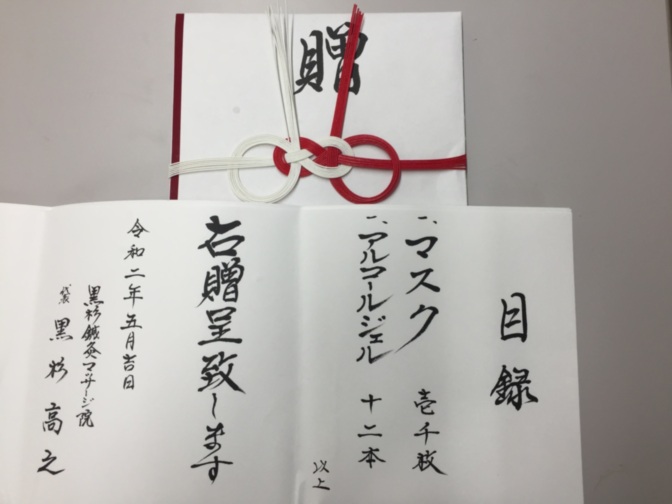 贈
目録
一、マスク 壱千枚
一、アルコールジェル 十二本
以上
右贈呈致します
令和二年五月吉日
黒杉鍼灸マッサージ院
代表 黒杉高之